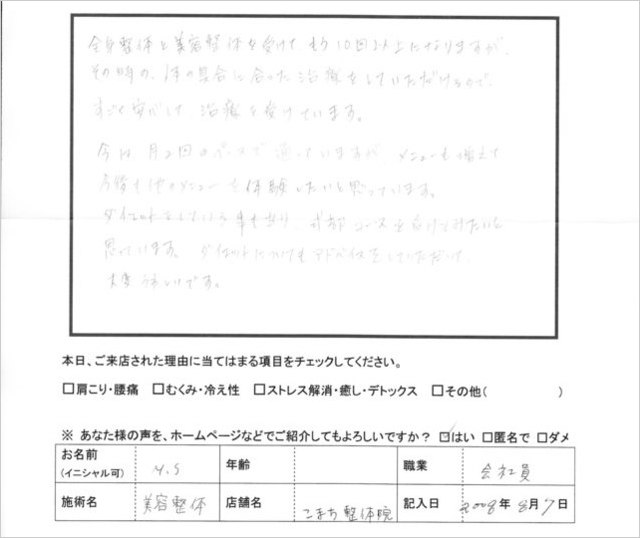 全身整体と美容整体を受けて、もう10回以上になりますが、
その時の、体の具合に合った治療をしていただけるので、
すごく安心して、治療を受けています。
今は月2回のペースで通っていますが、メニューも増えて
今後も他のメニューを体験したいと思っています。
ダイエットをしている事もあり、コースを受けてみたいと
思っています。ダイエットについてもアドバイスをしていただけて、
大変うれしいです。
本日、ご来店された理由に当てはまる項目をチェックしてください。
□肩こり・腰痛 □むくみ・冷え性 □ストレス解消・癒し・デトックス □その他( )
※ あなた様の声を、ホームページなどでご紹介してもよろしいですか? ☑はい □匿名で □ダメ
お名前 (イニシャル可) Y.S 年齢 職業 会社員
施術名 美容整体 店舗名 こまち整体院 記入日 2008年 8月 7日